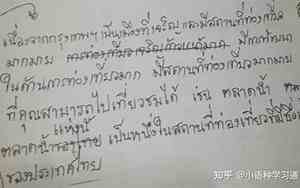 เนื่องจากกรุงเทพฯ เป็นเมืองที่เจริญ และมีสถานที่ท่องเที่ยว
มากมาย มีการพัฒนา
ในด้านการท่องเที่ยวมาก มีสถานที่ท่องเที่ยวมากมาย
ที่คุณสามารถไปเที่ยวชมได้ เช่น ตลาดน้ำ
แห่งนี้
ตลาดน้ำของไทย เป็นหนึ่งในสถานที่ท่องเที่ยวที่มีชื่อ
ของประเทศไทย
知乎 @小语种学习通